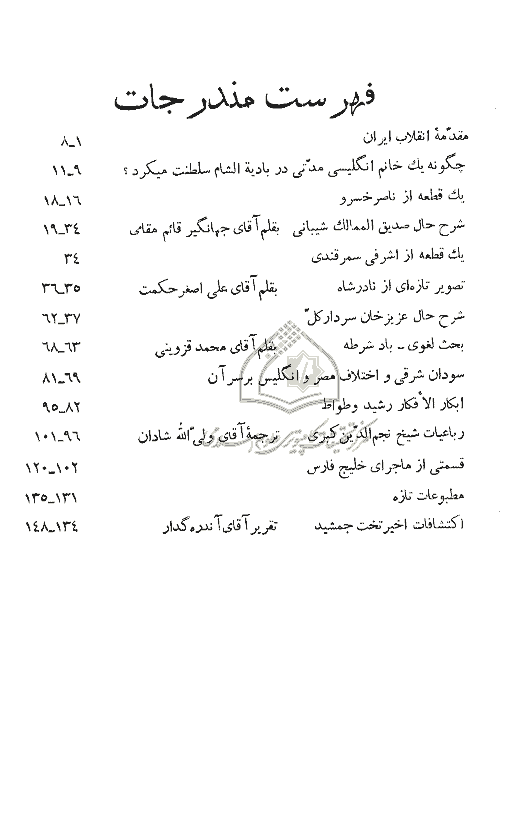 فهرست مندرجات
مقدّمهٔ انقلاب ایران ۱ـ۸
چگونه یك خانم انگلیسی مدّتی در بادیة الشام سلطنت میکرد؟ ۹ـ۱۱
یك قطعه از ناصرخسرو ۱۶ـ۱۸
شرح حال صدیق الممالك شیبانی بقلم آقای جهانگیر قائم مقامی ۱۹ـ۳٤
یك قطعه از اشرفی سمرقندی ۳٤
تصویر تازه‌ای از نادرشاه بقلم آقای علی اصغر حکمت ۳۵ـ۳٦
شرح حال عزیزخان سردار کلّ ۳۷ـ٦۲
بحث لغوی ـ باد شرطه بقلم آقای محمد قزوینی ٦۳ـ٦۸
سودان شرقی و اختلاف مصر و انگلیس برسر آن ٦۹ـ۸۱
ابکار الأفکار رشید وطواط ۸۲ـ۹۵
رباعیات شیخ نجم‌الدّین کبری ترجمهٔ آقای ولیّ‌الله شادان ۹٦ـ۱۰۱
قسمتی از ماجرای خلیج فارس ۱۰۲ـ۱۲۰
مطبوعات تازه ۱۳۱ـ۱۳۵
اکتشافات اخیر تخت جمشید تقریر آقای آندره گدار ۱۳٤ـ۱٤۸